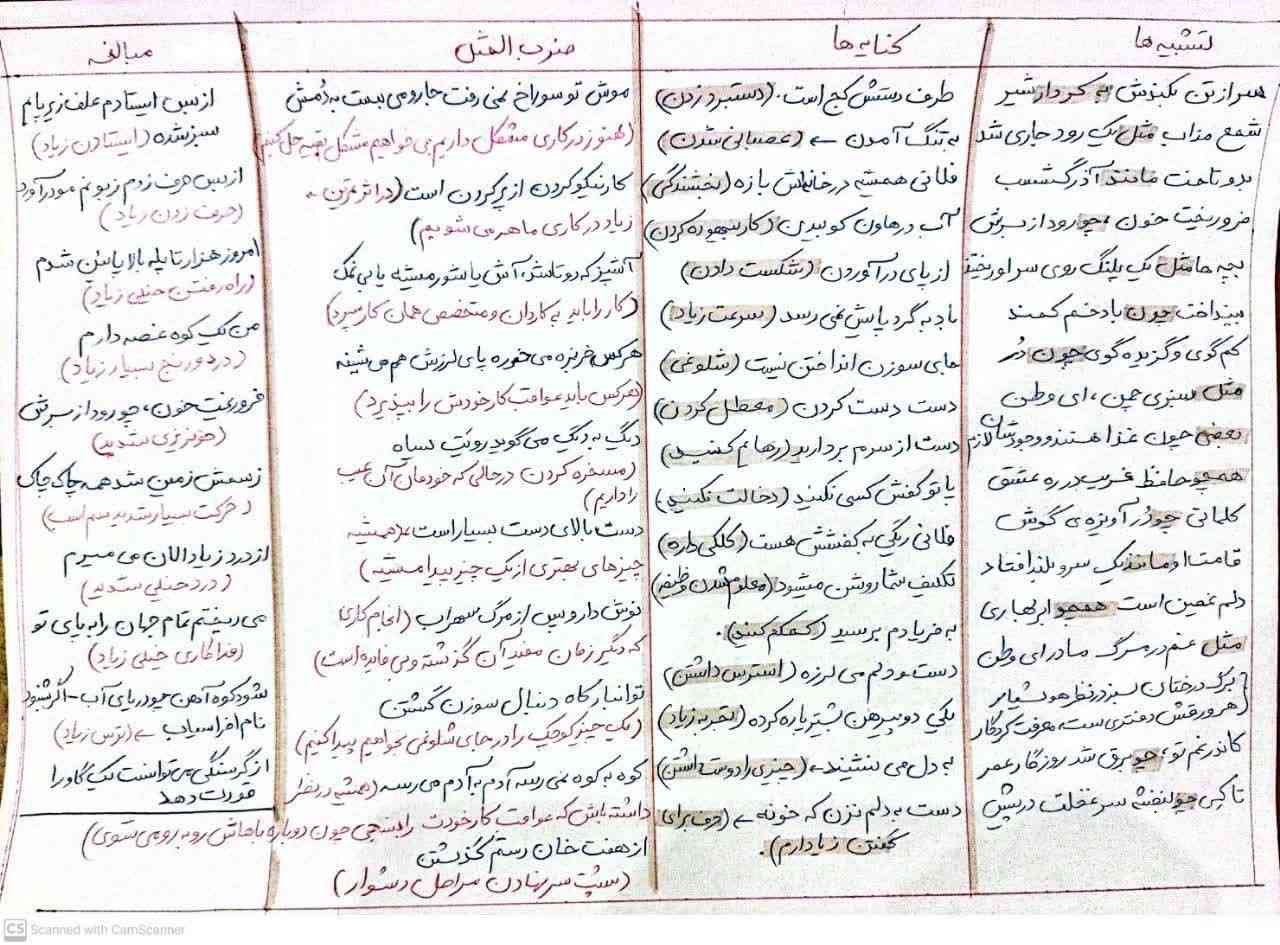 تشبیه ها
سر از تن بکندش به کردار شیر
شمع مزاب مثل یک رود جاری شد
بدو تاخت مانند آذرگشسب
فرو ریخت خون، چو رود از سرش
بچه ها مثل یک پلنگ روی سر او ریختند
بینداخت چون باد خم کمند
کم گوی و گزیده گوی چون دُر
مثل سبزی چمن، ای وطن
بعضی چون غذا هستند و وجودشان لازم
همچو حافظ غریب در ره عشق
کلماتی چو دُر آویزه ی گوش
قامت او مانند یک سرو بلند افتاد
دلم غمین است همچو ابر بهاری
مثل غم در مرگ مادر ای وطن
برگ درختان سبز در نظر هوشیار
هر ورقش دفتری ست، معرفت کردگار
کاندر غم تو، چو برق شد روزگار عمر
تا کی چو بنفشه سر غفلت در پیش
کنایه ها
طرف دستش کج است. (دستبرد زدن)
به تنگ آمدن ← (عصبانی شدن)
فلانی همیشه در خانه اش بازه (بخشندگی)
آب در هاون کوبیدن (کار بیهوده کردن)
از پای در آوردن (شکست دادن)
باد به گرد پایش نمی رسد (سرعت زیاد)
جای سوزن انداختن نیست (شلوغی)
دست دست کردن (معطل کردن)
دست از سرم بردارید (رهایم کنید)
پا تو کفش کسی نکنید (دخالت نکنید)
فلانی ریگی به کفشش هست (کلکی داره)
تکلیف شما روشن میشود (معلوم شدن وظیفه)
به فریادم برسید (کمکم کنید).
دست و دلم می لرزه (استرس داشتن)
یکی دو پیرهن بیشتر پاره کرده (تجربه زیاد)
به دل می نشیند ← (چیزی را دوست داشتن)
دست به دلم نزن که خونه ← (حرف برای
گفتن زیاد دارم).
ضرب المثل
موش تو سوراخ نمی رفت جارو می بست به دُمش
(هنوز در کاری مشکل داریم می خواهیم مشکل بقیه حل کنیم)
کار نیکو کردن از پر کردن است (در اثر تمرین
زیاد در کاری ماهر می شویم)
آشپز که دو تا شد، آش یا شور میشه یا بی نمک
(کار را باید به کاردان و متخصص همان کار سپرد)
هر کس خربزه می خوره پای لرزش هم می شینه
(هر کس باید عواقب کار خودش را بپذیرد)
دیگ به دیگ می گوید رویت سیاه
(مسخره کردن در حالی که خودمان آن عیب
را داریم)
دست بالای دست بسیار است، (همیشه
چیزهای بهتری از یک چیز پیدا میشه)
نوش دارو پس از مرگ سهراب (انجام کاری
که دیگر زمان مفید آن گذشته و بی فایده است)
تو انبار کاه دنبال سوزن گشتن
(یک چیز کوچک را در جای شلوغی بخواهیم پیدا کنیم)
کوه به کوه نمی رسه آدم به آدم می رسه (همیشه در نظر
داشته باش که عواقب کار خودت را بسنجی چون دوباره باهاش رو به رو می شوی)
از هفت خان رستم گذشتن
(پشت سر نهادن مراحل دشوار)
مبالغه
از بس ایستادم علف زیر پام
سبز شده (ایستادن زیاد)
از بس حرف زدم زبونم مو در آورد
(حرف زدن زیاد)
امروز هزار تا پله بالا پایین شدم
(راه رفتن خیلی زیاد)
من یک کوه غصه دارم
(درد و رنج بسیار زیاد)
فرو ریخت خون، چو رود از سرش
(خونریزی شدید)
ز سمش زمین شد همه چاک چاک
(حرکت بسیار شدید سم اسب)
از درد زیاد الان می میرم
(درد خیلی شدید)
می ریختم تمام جهان را به پای تو
(فداکاری خیلی زیاد)
شود کوه آهن چو دریای آب - اگر بشنود
نام افراسیاب ← (ترس زیاد)
از گرسنگی می توانست یک گاو را
قورت دهد
CS Scanned with CamScanner